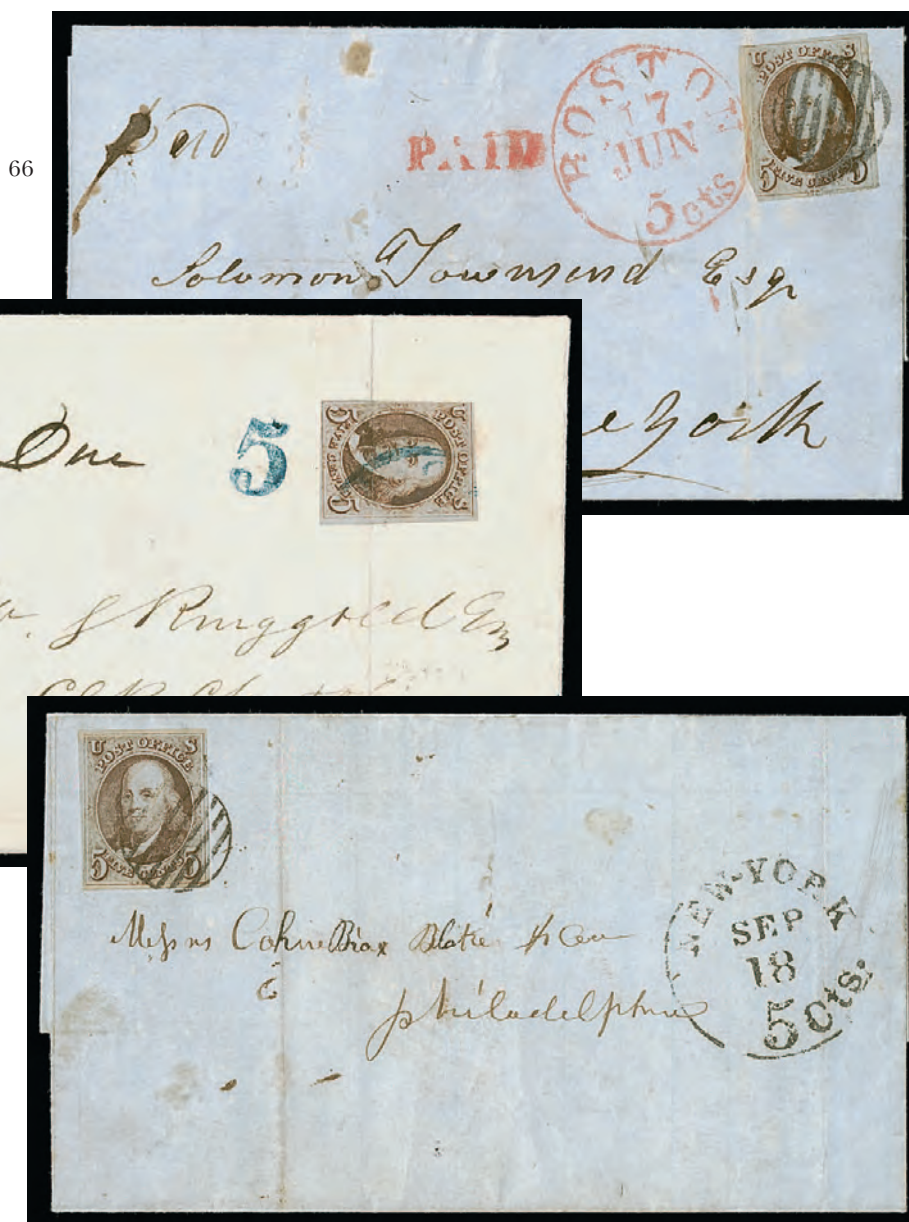 66
Paid
PAID
BOSTON
17
JUN
5 cts
U S
POST OFFICE
FIVE CENTS
5 5
Solomon Townsend Esqr
York
Due
5
U S
POST OFFICE
FIVE CENTS
5 5
Ringgold Esq
U S
POST OFFICE
FIVE CENTS
5 5
NEW-YORK
SEP
18
5 cts.
Messrs Cohn
Philadelphia